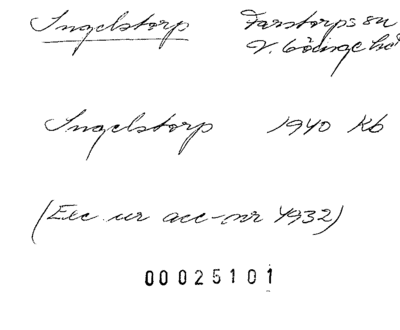 Ingelstorp Farstorps sn
V. Göinge hd
Ingelstorp 1940 Kb
(Exc. ur acc-nr 4932)
00025101